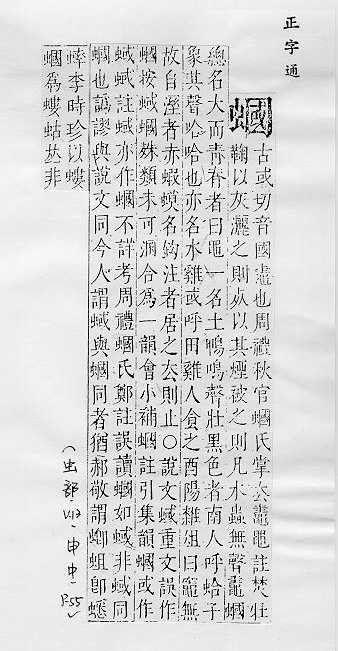 正字通
蟈
古或切音國䵷也周禮秋官蟈氏掌去䵷黽註焚牡
鞠以灰灑之則死以其煙被之則凡水蟲無聲䵷蟈
總名大而靑脊者曰黽一名土鴨鳴聲壯黑色者南人呼蛤子
象其聲哈哈也亦名水雞或呼田雞人食之酉陽雜俎曰籠無
故自溼者赤蝦蟆名鉤注者居之去則止○說文蜮重文誤作
蟈按蜮蟈殊類未可溷合爲一韻會小補蟈註引集韻蟈或作
蜮蜮註蜮亦作蟈不詳考周禮蟈氏鄭註誤讀蟈如蜮非蜮同
蟈也譌謬與說文同今人謂蜮與蟈同者猶郝敬謂蝍蛆卽蟋
蟀李時珍以螻
蟈爲螻蛄𠀤非
(虫部、申中、P.55)